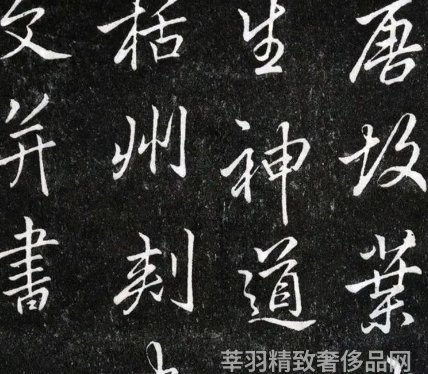 唐故葉
生神道
括州刺
文并書
莘羽精致奢侈品网